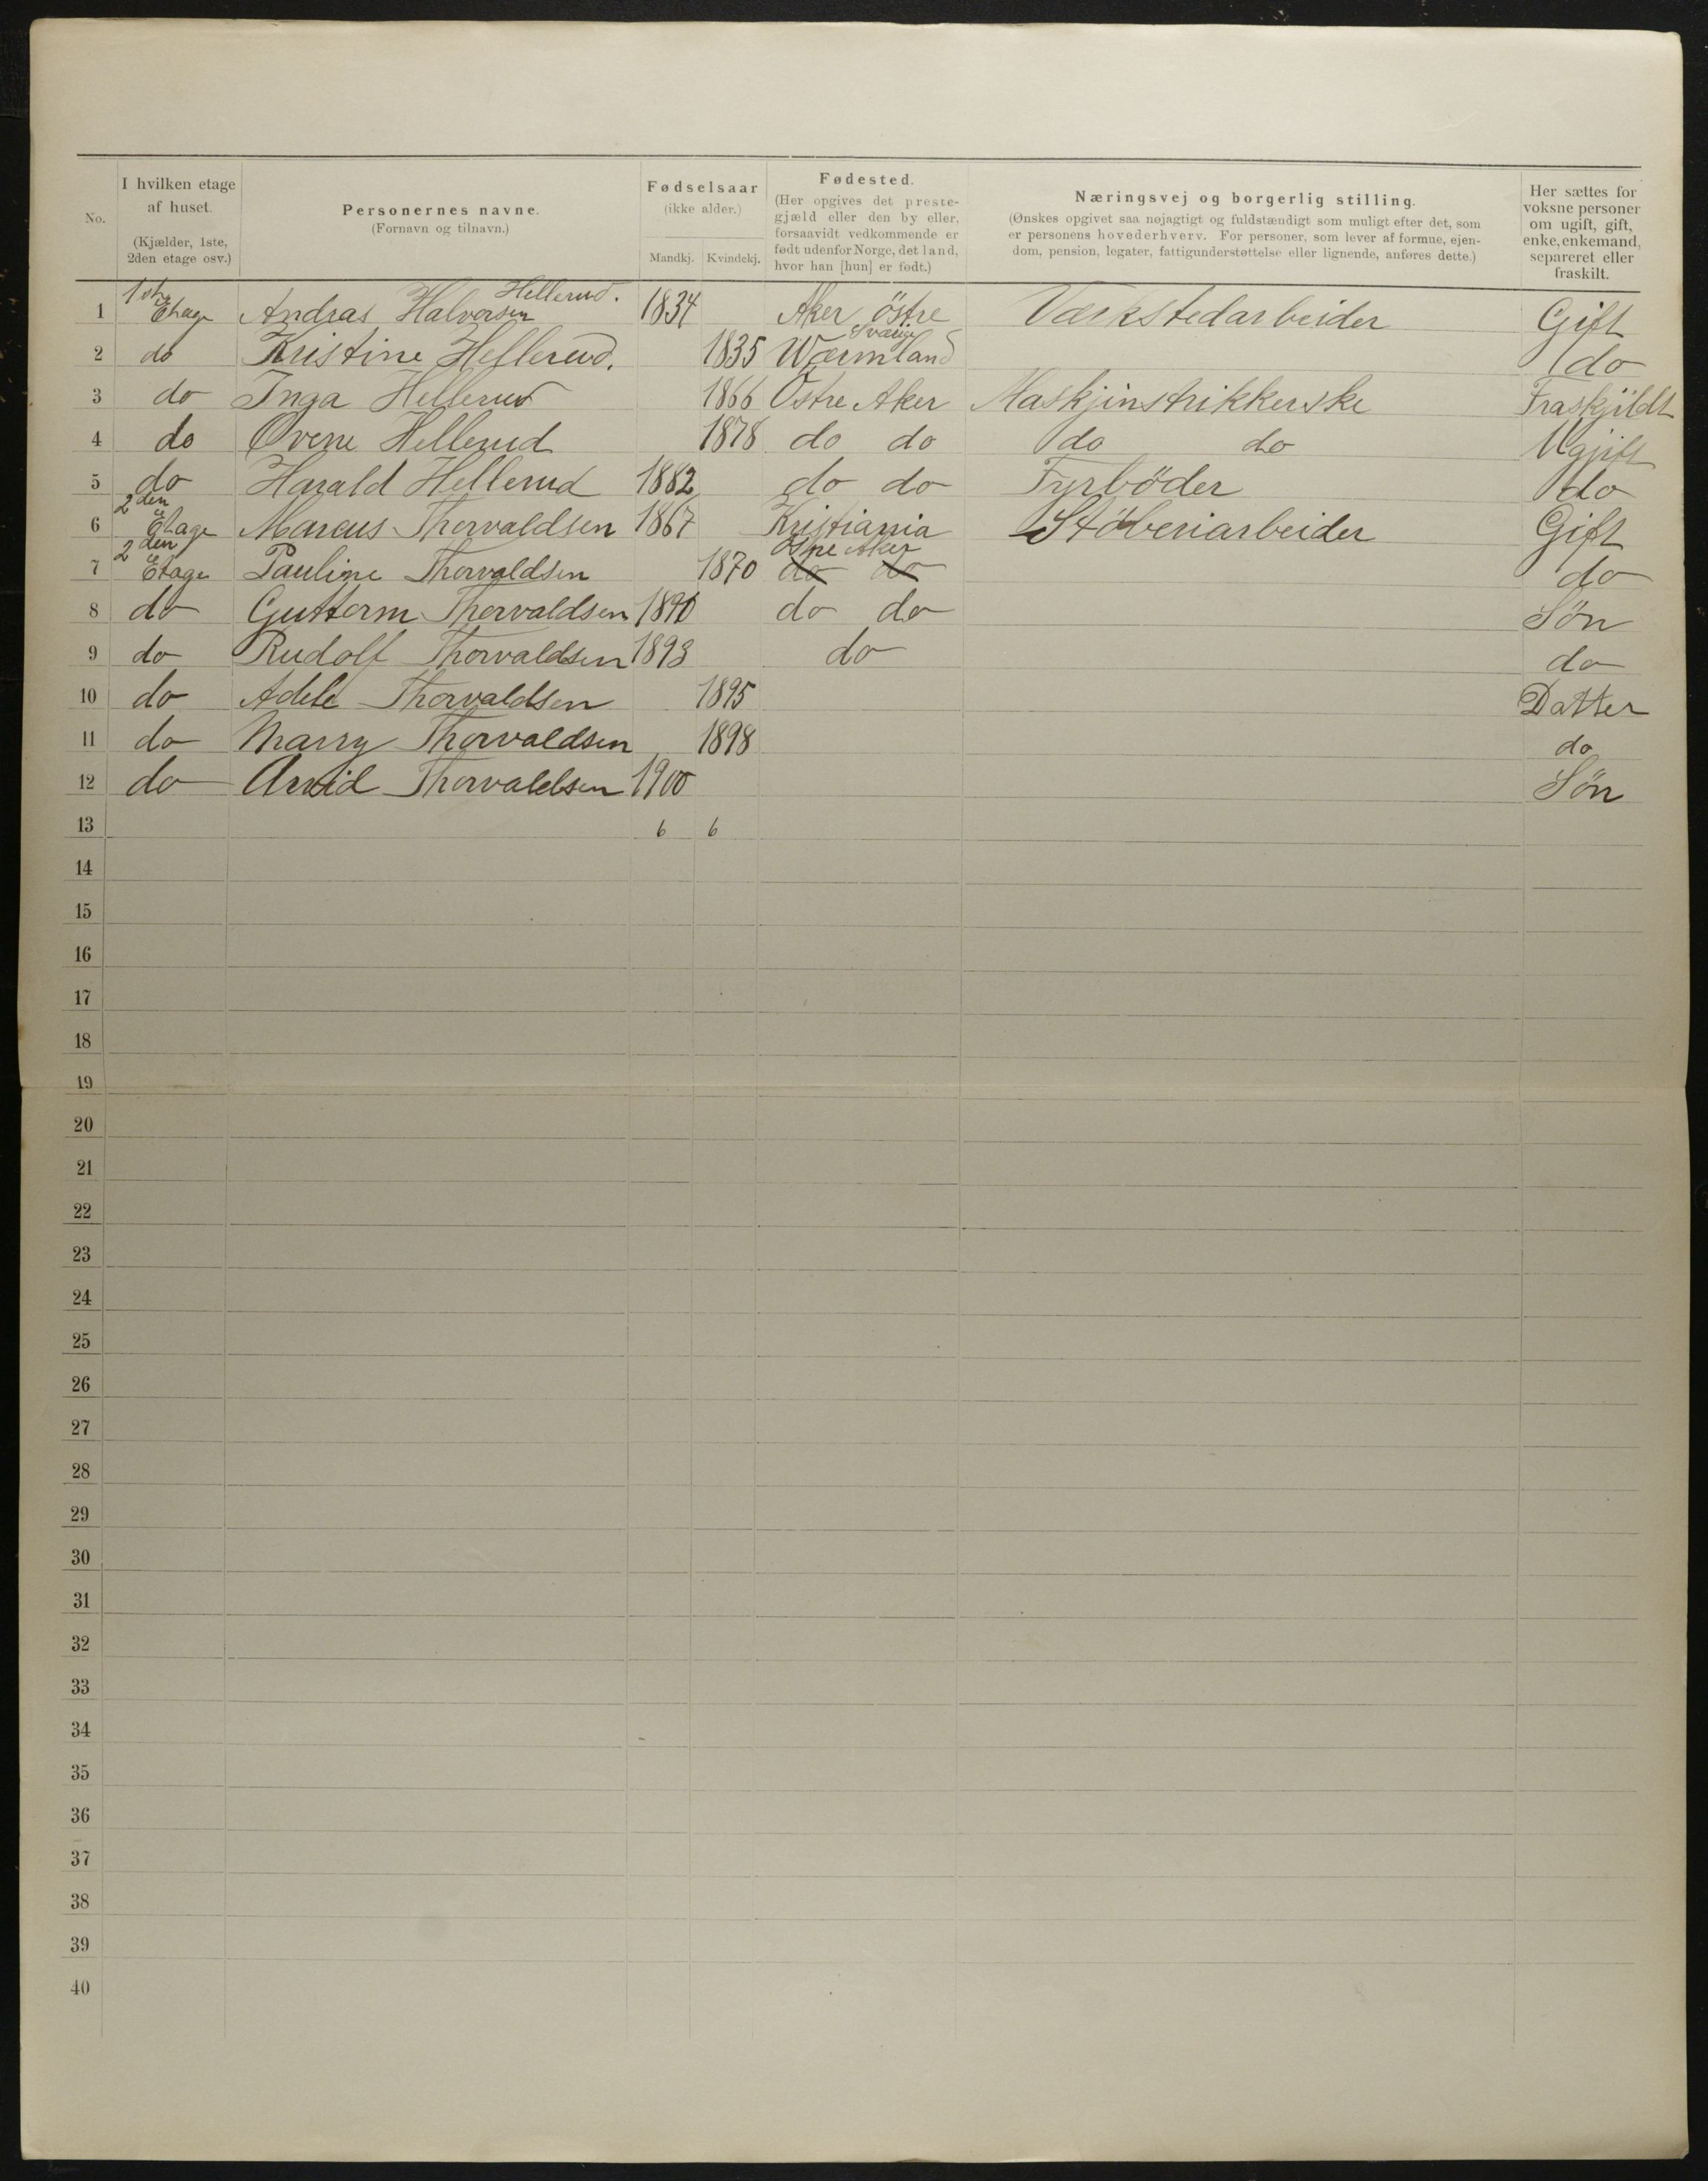 No.
I hvilken etage
af huset.
(Kjælder, 1ste,
2den etage osv.)
Personernes navne.
(Fornavn og tilnavn.)
Fødselsaar
(ikke alder.)
Mandkj. Kvindekj.
Fødested.
(Her opgives det preste-
gjæld eller den by eller,
forsaavidt vedkommende er
født udenfor Norge, det land,
hvor han [hun] er født.)
Næringsvej og borgerlig stilling.
(Ønskes opgivet saa nøjagtigt og fuldstændigt som muligt efter det, som
er personens hovederhverv. For personer, som lever af formue, ejen-
dom, pension, legater, fattigunderstøttelse eller lignende, anføres dette.)
Her sættes for
voksne personer
om ugift, gift,
enke, enkemand,
separeret eller
fraskilt.
1 1ste Etage Andras Halvorsen Hellerud. 1834 Aker östre Værkstedarbeider Gift
2 do Kristine Hellerud. 1835 Wærmland Sværige do
3 do Inga Hellerud 1866 Östre Aker Maskjinstrikkerske Fraskjildt
4 do Ovene Hellerud 1878 do do do do Ugift
5 do Harald Hellerud 1882 do do Fyrböder do
6 2den Etage Marcus Thorvaldsen 1867 Kristiania Stöberiarbeider Gift
7 2den Etage Pauline Thorvaldsen 1870 Östre Aker do do do
8 do Guttorm Thorvaldsen 1890 do do Sön
9 do Rudolf Thorvaldsen 1893 do do
10 do Adele Thorvaldsen 1895 Datter
11 do Marry Thorvaldsen 1898 do
12 do Arvid Thorvaldsen 1900 Sön
13 6 6
14
15
16
17
18
19
20
21
22
23
24
25
26
27
28
29
30
31
32
33
34
35
36
37
38
39
40